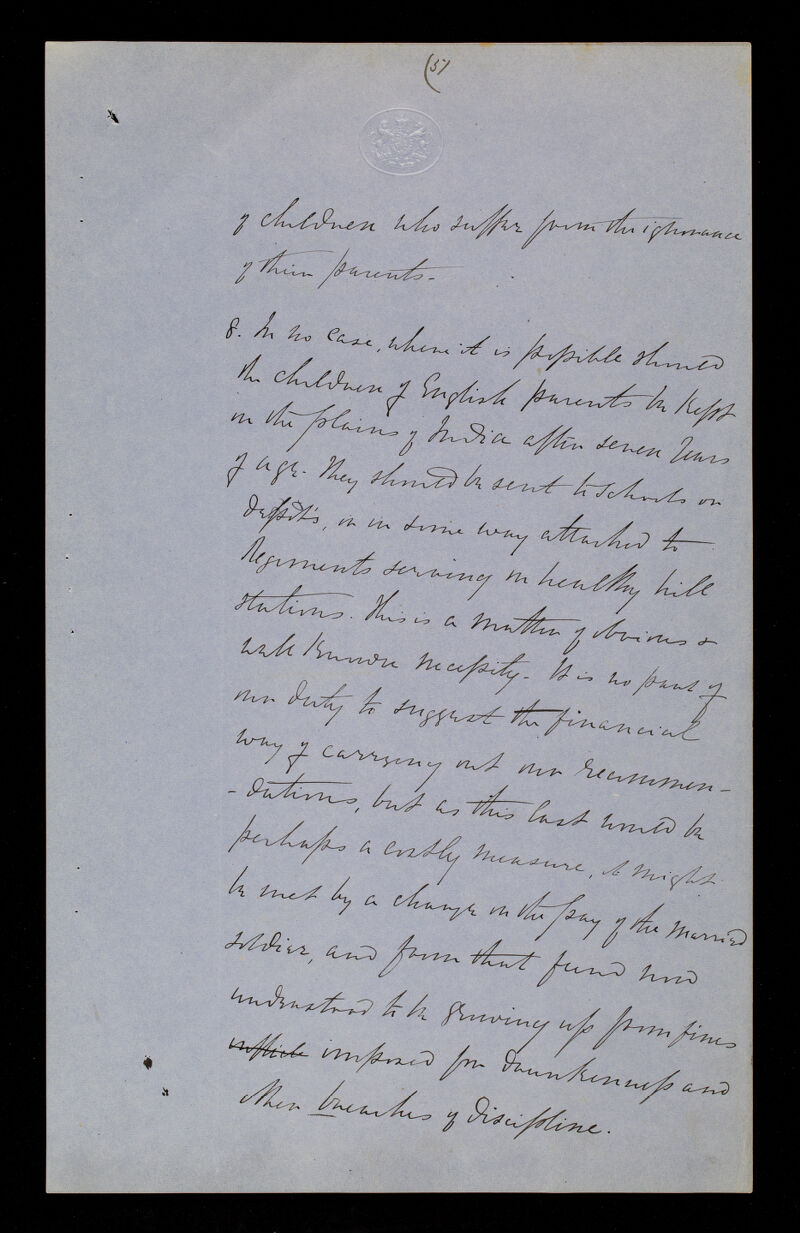 (51
of children who suffer from the ignorance
of their parents -
8. In no case, where it is possible should
the children of English parents be kept
in the plains of India after seven Years
of age. They should be sent to Schools or
depôts, or in some way attached to
Regiments serving in healthy hill
stations. This is a matter of obvious &
well known necessity - It is no part of
our duty to suggest the financial
way of carrying out our recommen -
- dations, but as this last would be
perhaps a costly measure, it might
be met by a change in the pay of the married
soldier, and from that fund now
understood to be growing up from fines
imposed for drunkenness and
other breaches of discipline.